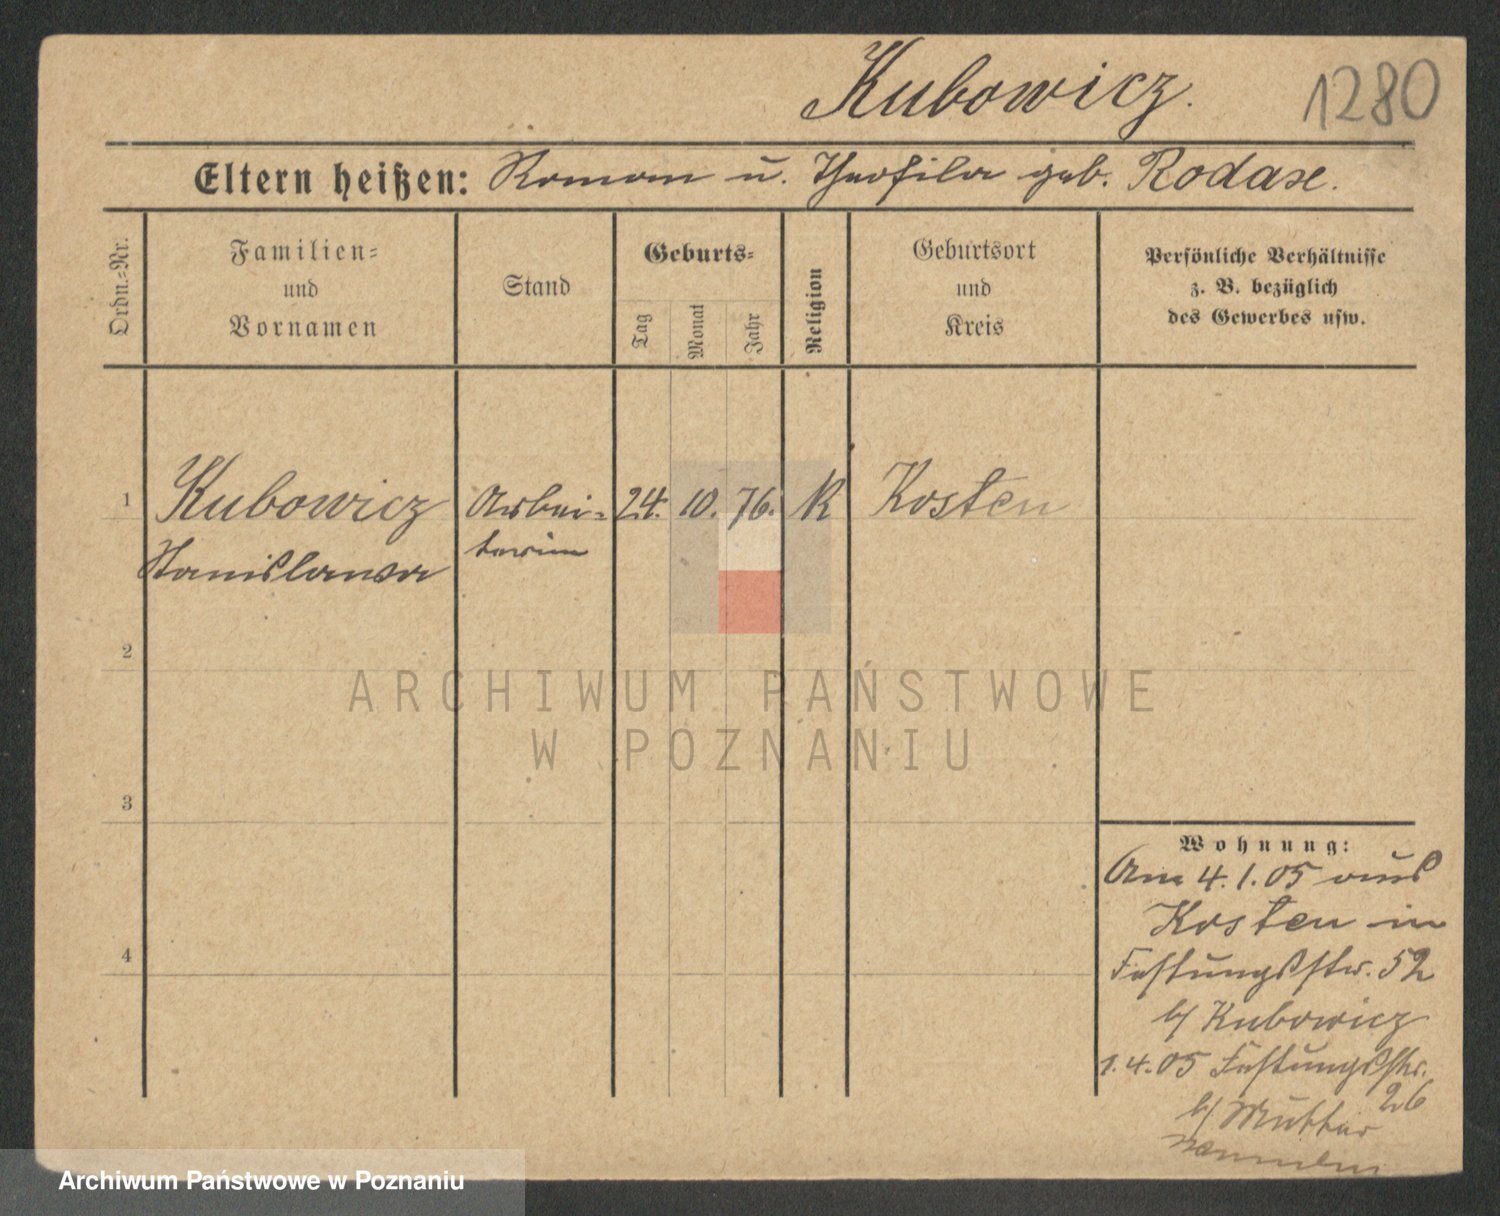 Kubowicz.
1280
Eltern heißen: Roman u. Theofila geb. Rodase.
Ordn.-Nr.
Familien-
und
Vornamen
Stand
Geburts-
Tag
Monat
Jahr
Religion
Geburtsort
und
Kreis
Persönliche Verhältnisse
z. B. bezüglich
des Gewerbes usw.
1 Kubowicz Arbei- 24. 10. 76. K Kosten
Stanislawa terin
2
3
4
ARCHIWUM PAŃSTWOWE
W POZNANIU
Wohnung:
Am 4.1.05 aus
Kosten in
Festungsstr. 52
b/ Kubowicz
1.4.05 Festungsstr.
26
b/ Mutter
Archiwum Państwowe w Poznaniu